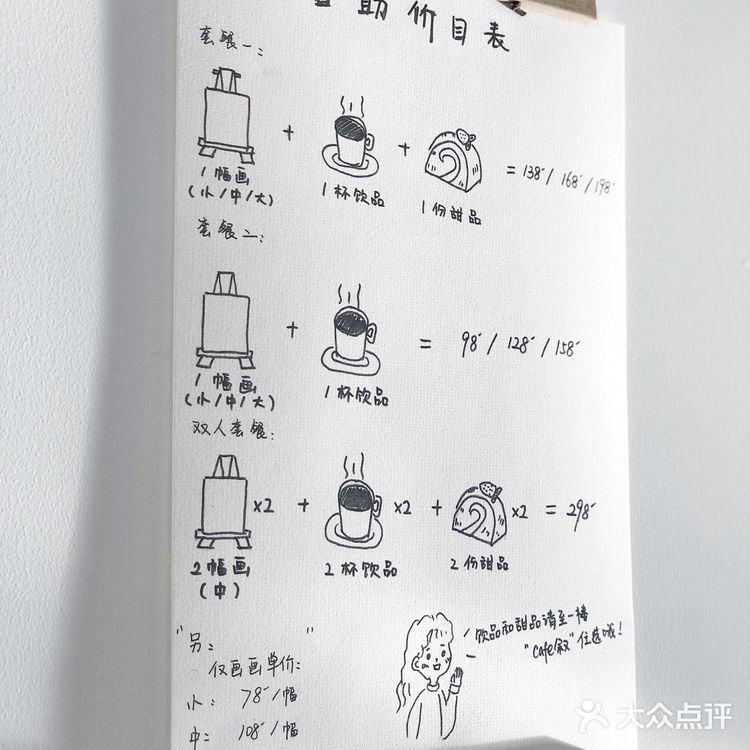 助价目表
套餐一:
+ + = 138/ 168/198
1幅画 1杯饮品 1份甜品
(小/中/大)
套餐二:
+ = 98/128/158
1幅画 1杯饮品
(小/中/大)
双人套餐:
x2 + x2 + x2 = 298
2幅画 2杯饮品 2份甜品
(中)
饮品和甜品请至一楼
"cafe叙"任选哦!
"另: "
仅画画单价:
小: 78/幅
中: 108/幅
大众点评